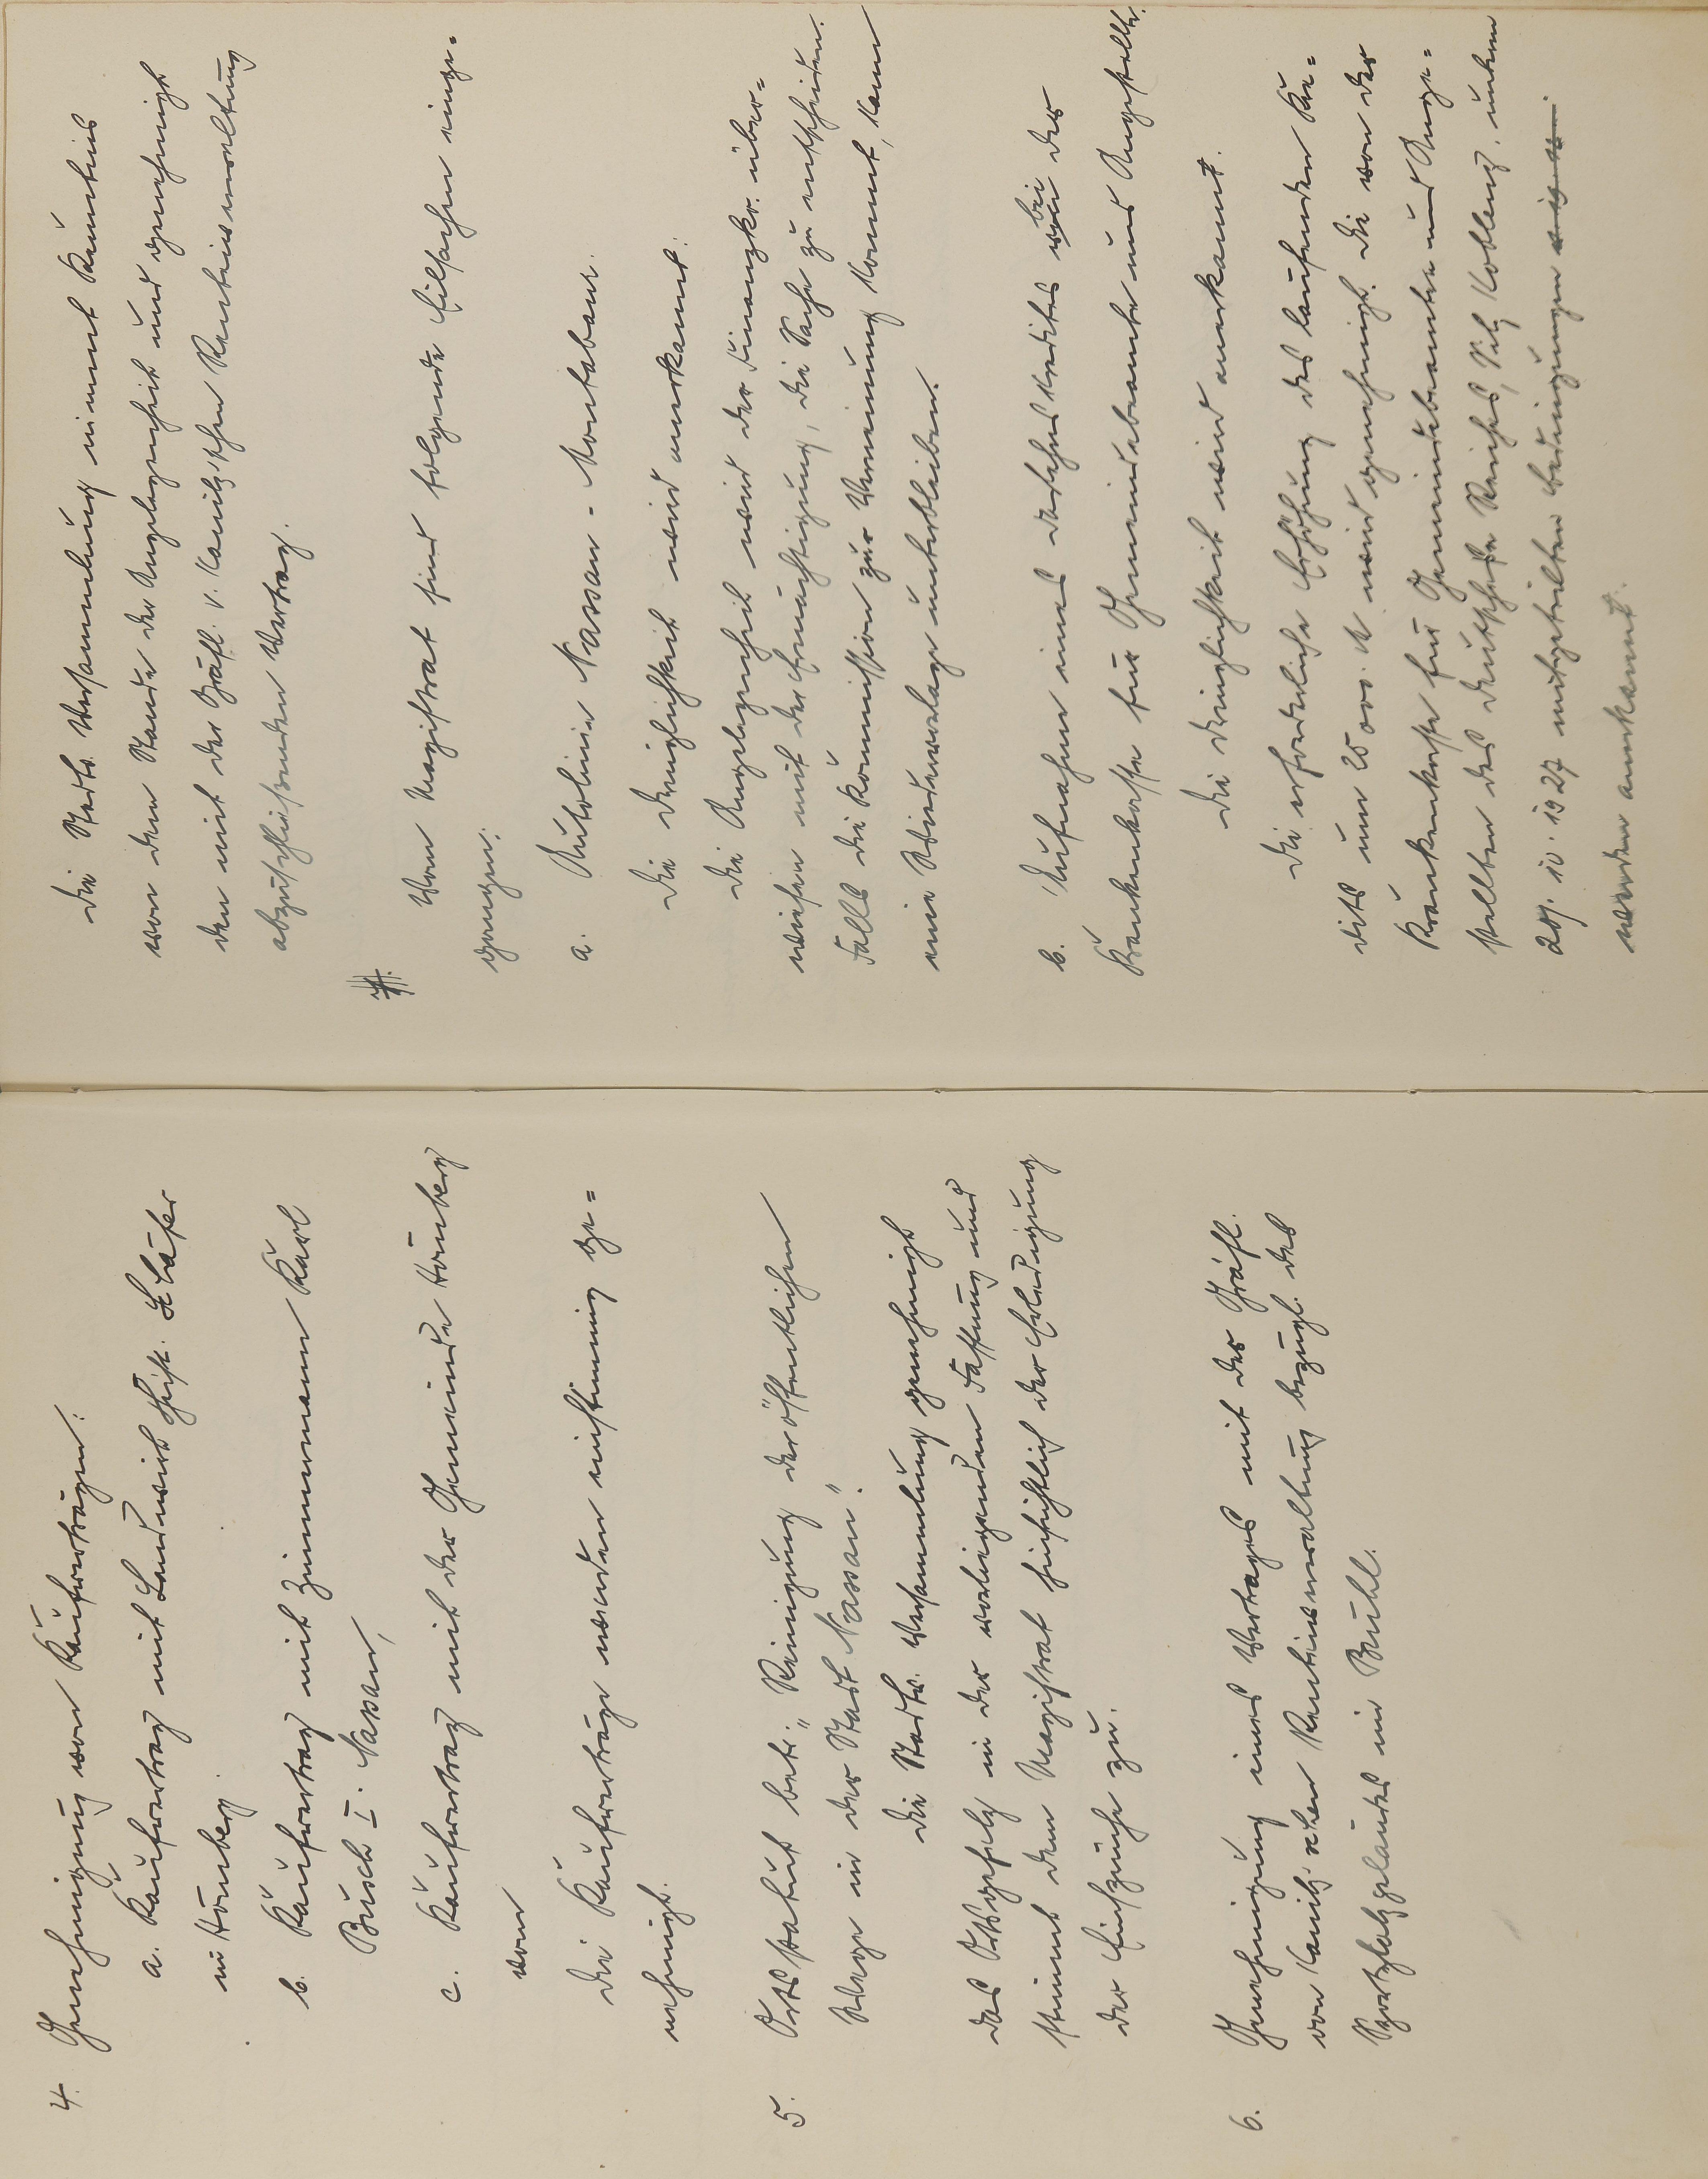 4. Genehmigung von Kaufverträgen:
a. Kaufvertrag mit Landwirt Christ. Schäfer
in Hömberg.
b. Kaufvertrag mit Zimmermann Karl
Busch I. Nassau,
c. Kaufvertrag mit der Gemeinde Hömberg
vom
Die Kaufverträge werden einstimmig ge=
nehmigt.
5. Ortsstatut betr. „Reinigung der öffentlichen
Wege in der Stadt Nassau".
Die Stadtv. Versammlung genehmigt
das Ortsgesetz in der vorliegenden Fassung und
stimmt dem Magistrat hinsichtlich der Erledigung
der Einsprüche zu.
6. Genehmigung eines Vertrages mit der Gräfl.
von Kanitz'schen Renteiverwaltung bezügl. des
Sportplatzgeländes im Bühl.
Die Stadtv. Versammlung nimmt Kenntnis
von dem Stande der Angelegenheit und genehmigt
den mit der Gräfl. v. Kanitz'schen Renteiverwaltung
abzuschließenden Vertrag.
Vom Magistrat sind folgende Eilsachen einge=
gangen:
a. Autolinie Nassau - Montabaur.
Die Dringlichkeit wird anerkannt.
Die Angelegenheit wird der Finanzko. über=
wiesen mit der Ermächtigung, die Sache zu entscheiden.
Falls die Kommission zur Verneinung kommt, kann
eine Wiedervorlage unterbleiben.
b. Aufnahme eines Darlehnskredites bei der
Krankenkasse für Gemeindebeamte und Angestellte.
Die Dringlichkeit wird anerkannt.
Die erforderliche Erhöhung des laufenden Kre=
dits um 25000. M wird genehmigt. Die von der
Krankenkasse für Gemeindebeamte und Ange=
stellten des Deutschen Reiches, Sitz Koblenz, unterm
29. 10. 1927 mitgeteilten Bedingungen
werden anerkannt.